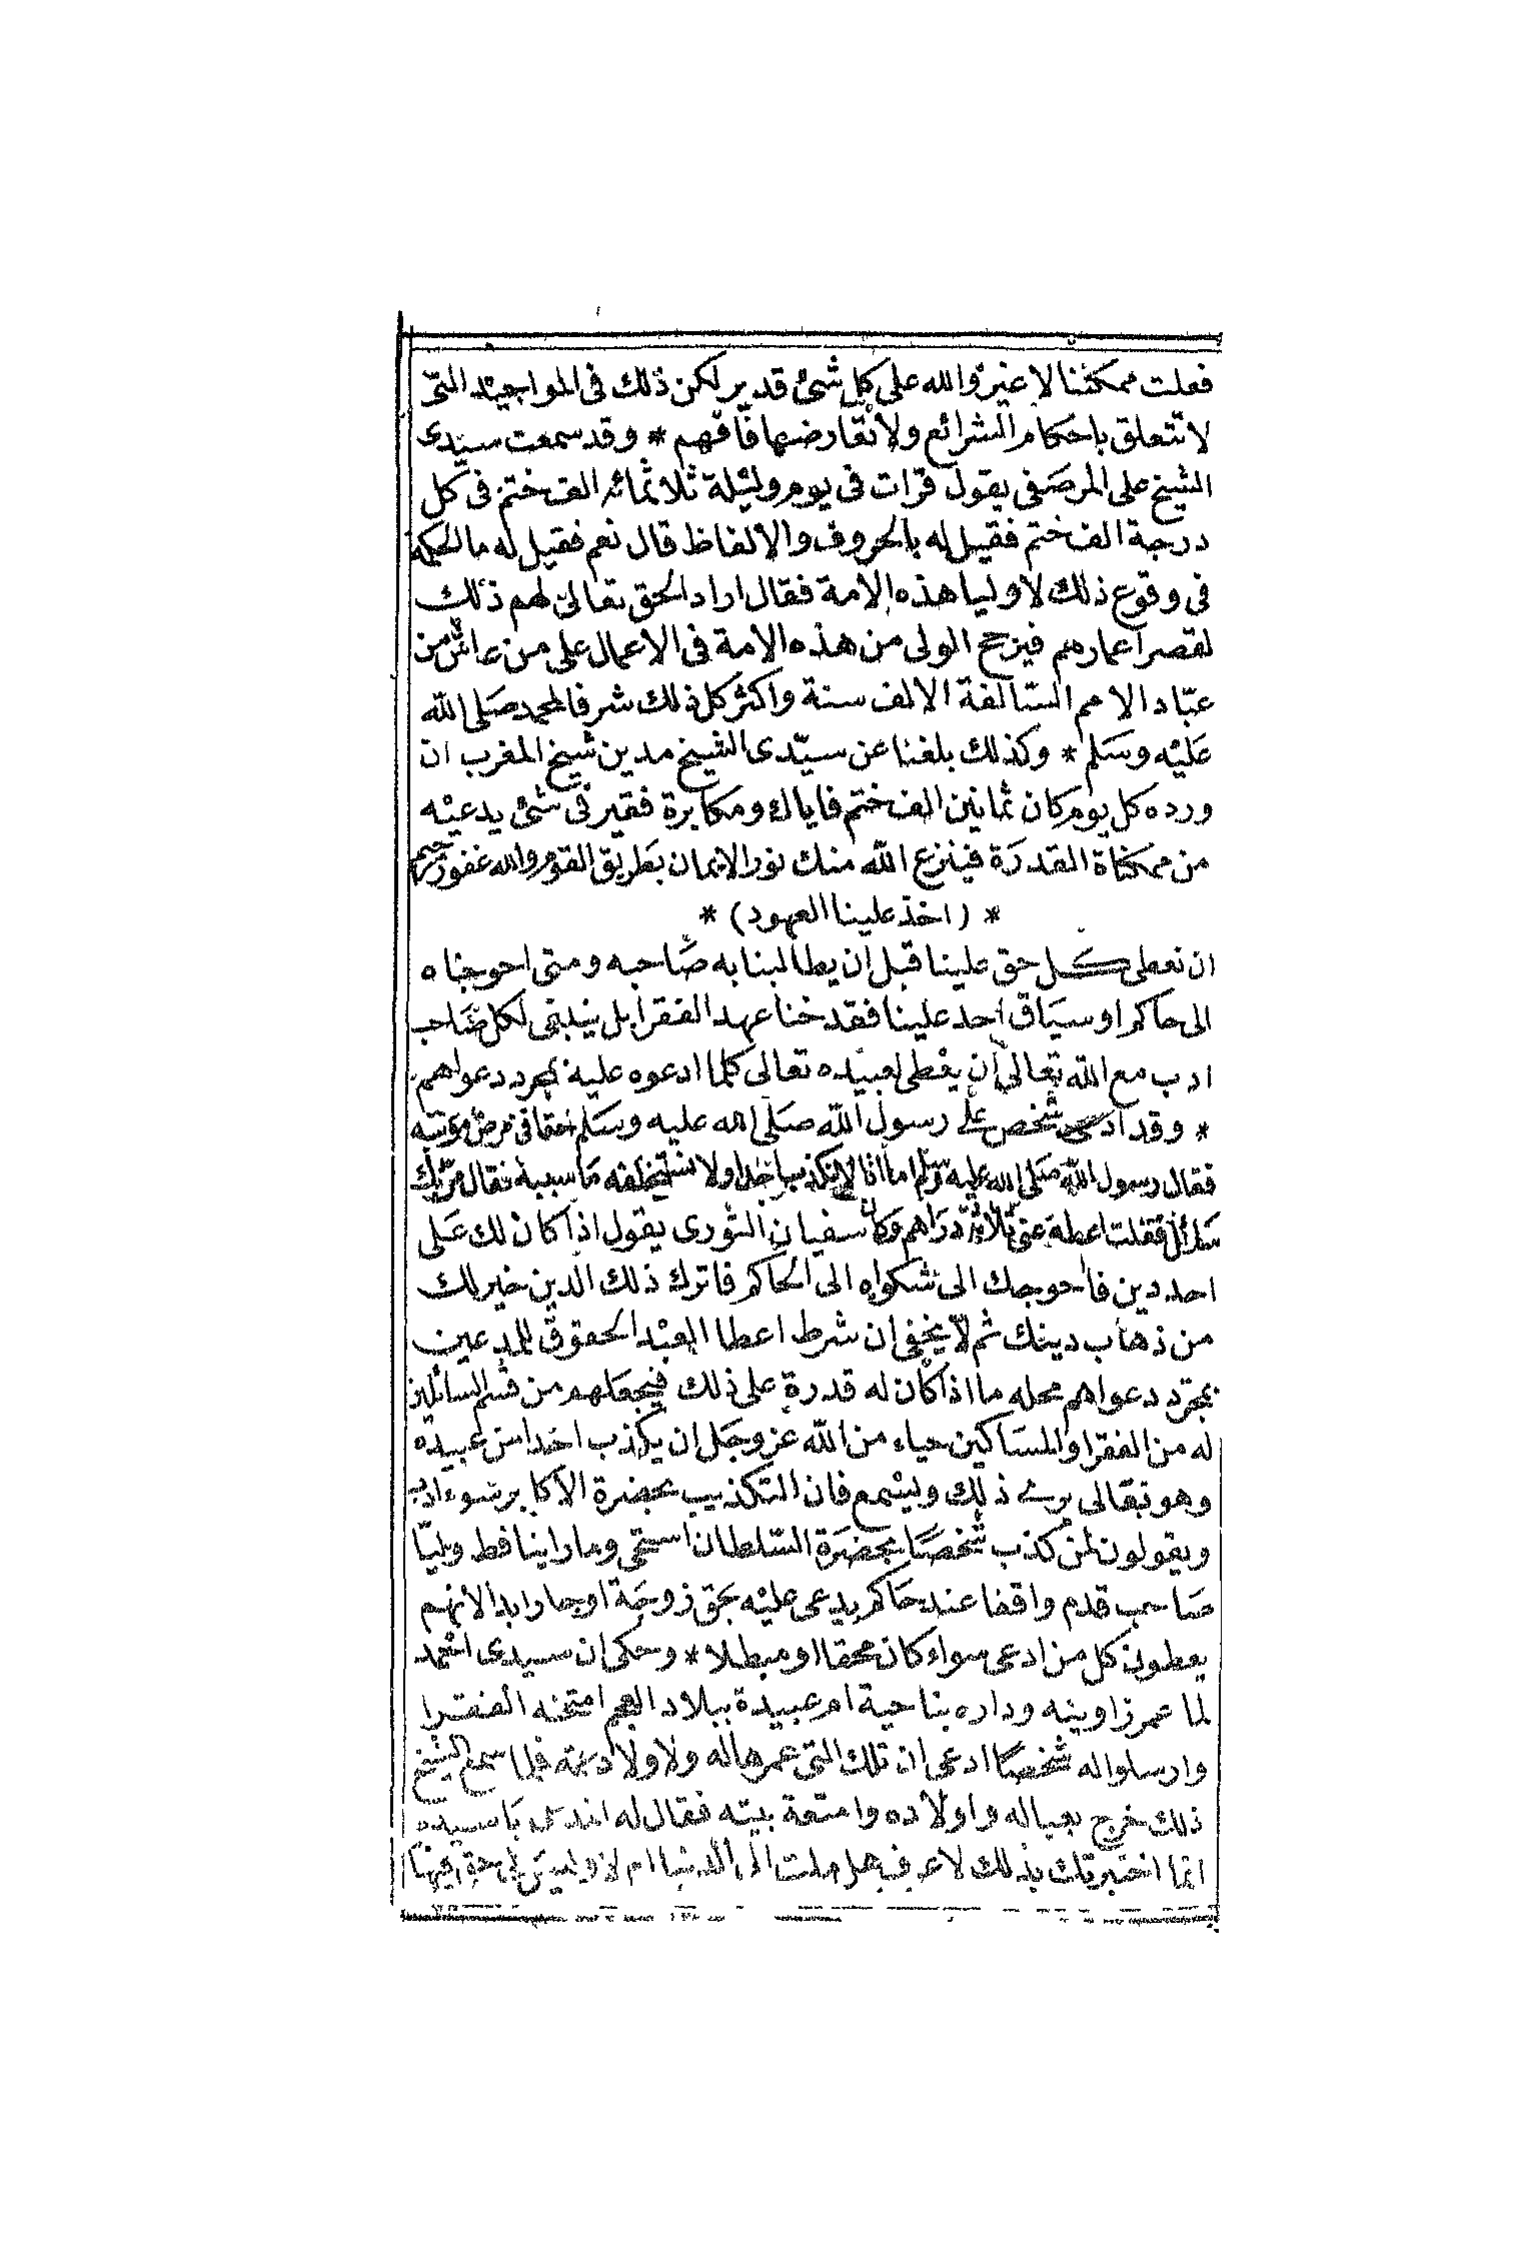 فعلت ممكنا لا غير والله على كل شئ قدير لكن ذلك فى المواجيد التى
لا تتعلق باحكام الشرائع ولا تعارضها فافهم * وقد سمعت سيدى
الشيخ على المرصفى يقول قرات فى يوم وليلة ثلاثمائه الف ختم فى كل
درجة الف ختم فقيل له بالحروف والالفاظ قال نعم فقيل له ما الحكمه
فى وقوع ذلك لاوليا هذه الامة فقال اراد الحق تعالى لهم ذلك
لقصر اعمارهم فيرجح الولى من هذه الامة فى الاعمال على من عاش من
عبّاد الامم السّالفة الالف سنة واكثر كل ذلك شرفا لمحمد صَلى الله
عَليْه وسَلم * وكذلك بلغنا عن سيّدى الشيخ مدين شيخ المغرب ان
ورده كل يوم كان ثمانين الف ختم فاياك ومكابرة فقير فى شئ يدعيْه
من ممكناة القدرَة فينزع الله منك نور الايمان بطريق القوم والله غفور رحيم
* (اخذ علينا العهود) *
ان نعطى كل حق علينا قبل ان يطالبنا به صَاحبه ومتى احوجناه
الى حاكم او سيَاق احد علينا فقد خنا عهد الفقرا بل ينبغى لكل صَاحب
ادب مع الله تعالى أن يعْطى لعبيْده تعالى كلما ادعوه عليه بمجرد دعواهم
* وقد ادعى شخص على رسول الله صَلى الله عليه وسَلم حقا فى مرض موته
فقال رسول الله صَلى الله عليه وسلم اما انا لا نكذب احدا ولا نستحلفه مَا سببه فقال مرّ بك
سَائل فقلت اعطه عنى ثلاثة درَاهم وكان سفيان الثورى يقول اذا كان لك عَلى
احد دين فاحوجك الى شكواه الى الحَاكم فاترك ذلك الدين خير لك
من ذهاب دينك ثم لا يخفى ان شرط اعطا العبْد الحقوق للمدعين
بمجرّد دعواهم محله ما اذا كان له قدرة على ذلك فيجعَلهم من قسم السائلين
له من الفقرا والمسَاكين حياء من الله عز وجَل ان يكذب احدا من عبيده
وهو تعَالى يرى ذلك ويسْمع فان التكذيب بحضرة الاكابر سوء ادب
ويقولون لمن كذب شخصًا بحضرَة السّلطان استحى وما راينا قط وليّا
صَاحب قدم واقفا عند حَاكم يدعى عليْه بحق زوجَة او جار ابدا لانهم
يعطون كل من ادعى سواء كان محقا او مبطلا * وحكى ان سيدى احْمد
لما عمر زاويته وداره بناحية ام عبيدة ببلاد العجم امتحنه الفقرا
وارسلوا له شخصًا ادعى ان تلك التى عمرها له ولاولاد عمه فلما سمع الشيخ
ذلك خرج بعياله واولاده وامتعة بيته فقال له المدعى يَا سيدى
انما اختبرتك بذلك لاعرف هل ملت الى الدنيا ام لا وليس لى حق فيهَا